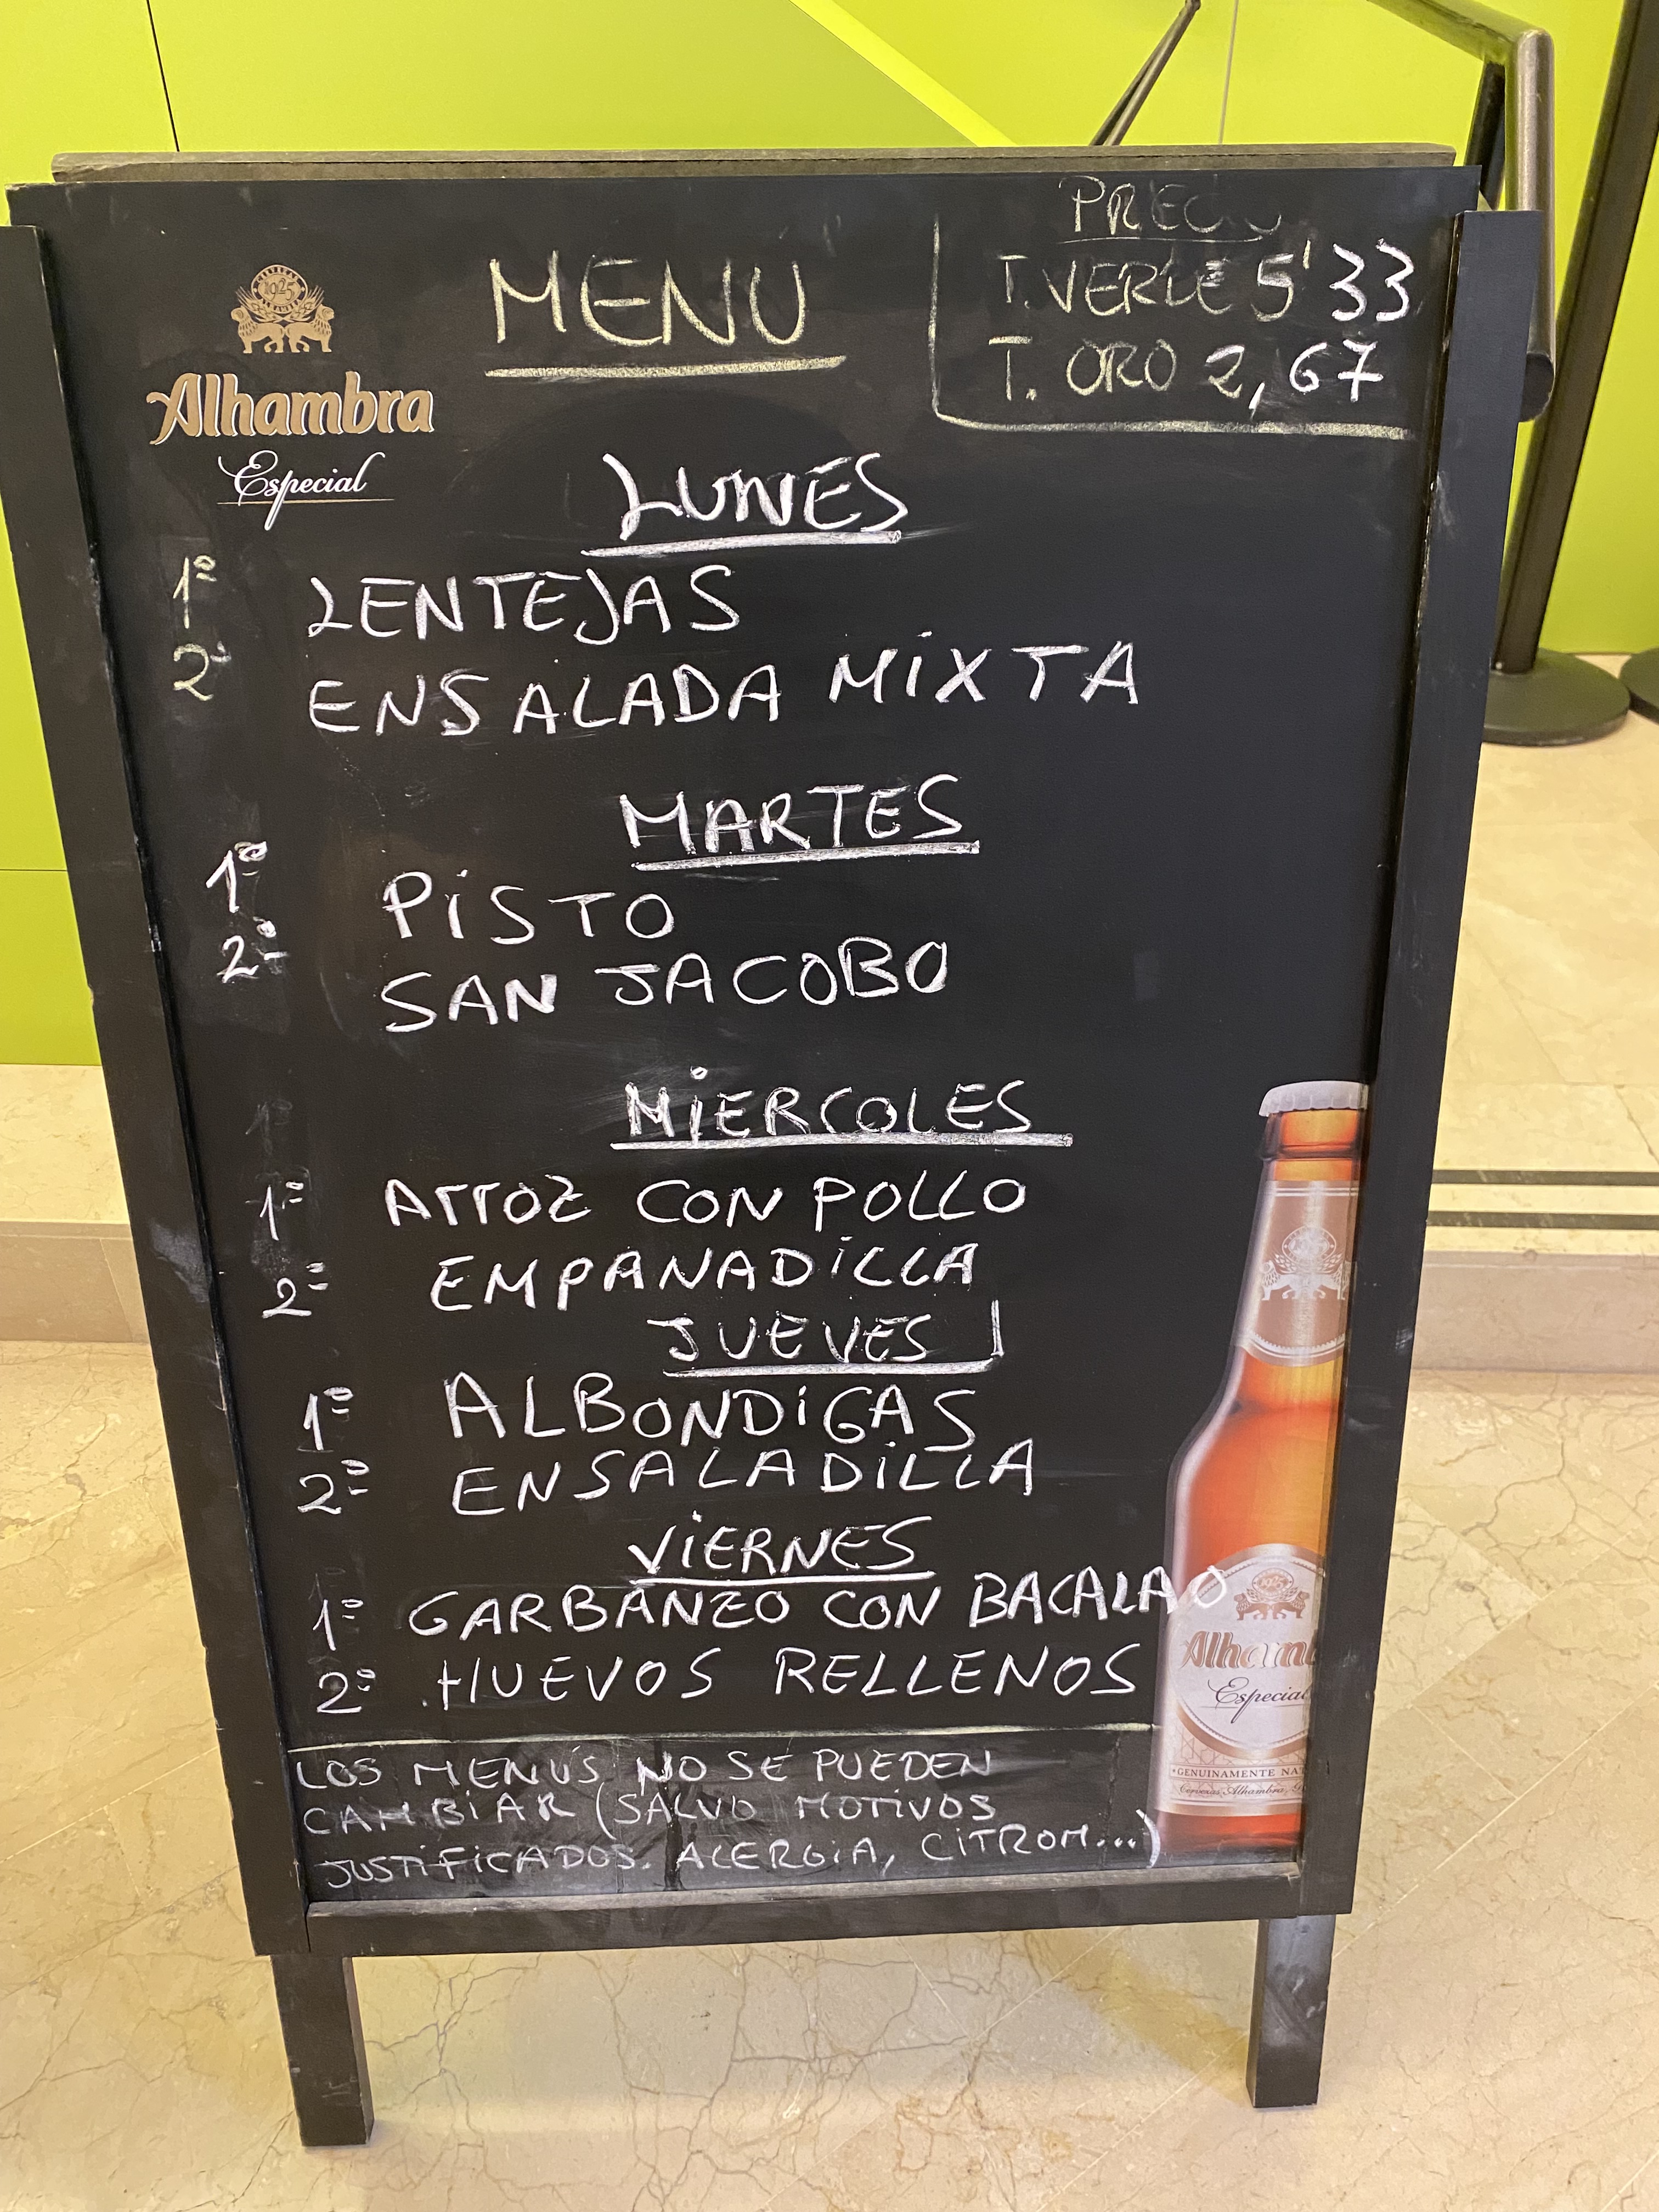 PRECIO
T. VERDE 5'33
T. ORO 2,67
MENU
CERVEZAS
1925
ALHAMBRA
Alhambra
Especial
LUNES
1º LENTEJAS
2º ENSALADA MIXTA
MARTES
1º PISTO
2º SAN JACOBO
MIERCOLES
1º
1º Arroz CON POLLO
2º EMPANADILLA
JUEVES
1º ALBONDIGAS
2º ENSALADILLA
VIERNES
1º GARBANZO CON BACALAO
2º HUEVOS RELLENOS
LOS MENUS NO SE PUEDEN
CAMBIAR (SALVO MOTIVOS
JUSTIFICADOS. ALERGIA, CITROM...)
1925
Alhamb
Especial
GENUINAMENTE NA
Cervezas Alhambra,